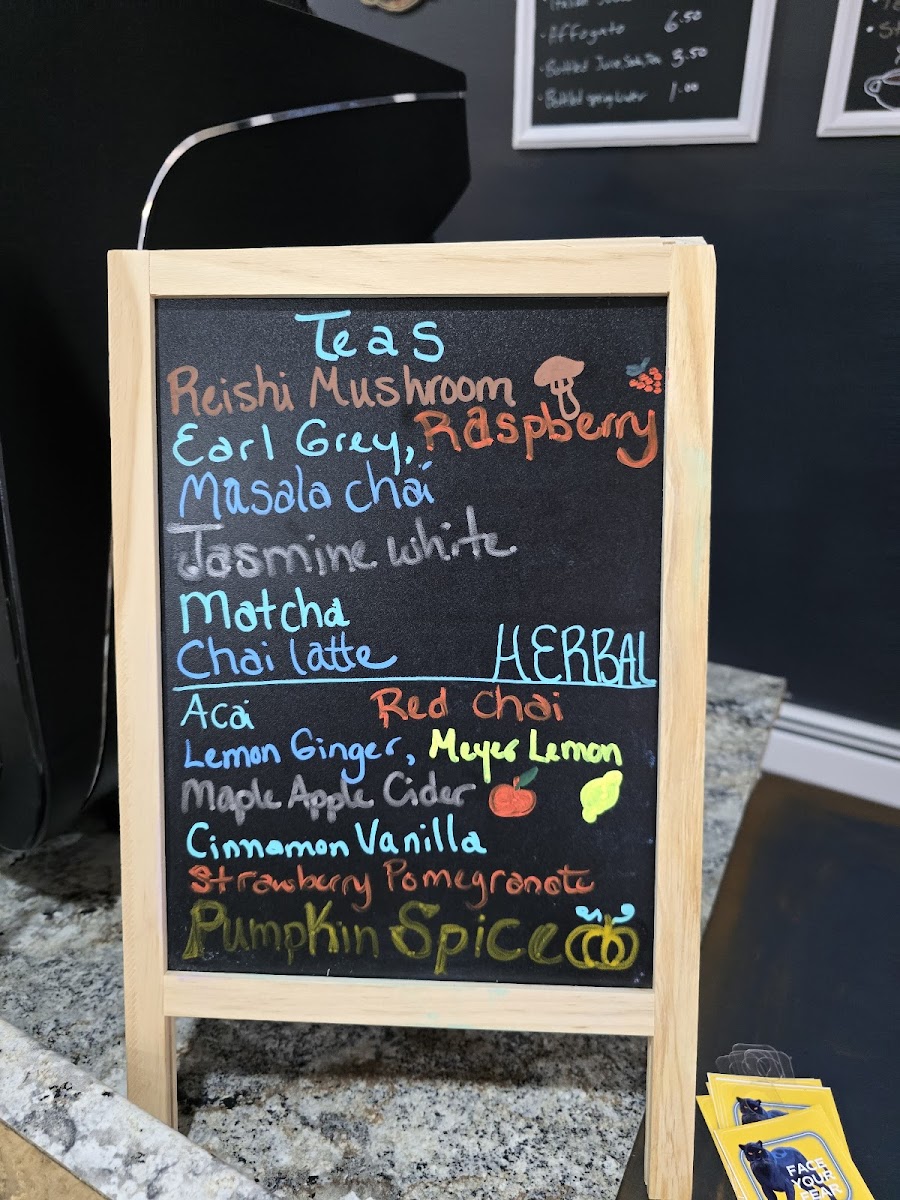 Affogato 6.50
Bottled Juice, Soda, Tea 3.50
Bottled spring water 1.00
Teas
Reishi Mushroom
Earl Grey, Raspberry
Masala chai
Jasmine white
Matcha
Chai latte
HERBAL
Acai Red Chai
Lemon Ginger, Meyer Lemon
Maple Apple Cider
Cinnamon Vanilla
Strawberry Pomegranate
Pumpkin Spice
FACE
YOUR
FEAR